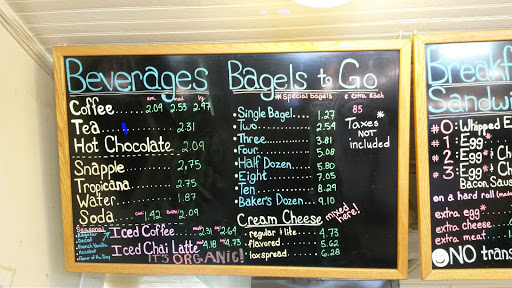 Beverages
sm. med. lg.
Coffee....... 2.09 2.53 2.97
Tea ........... 2.31
Hot Chocolate 2.09
Snapple ......... 2.75
Tropicana ....... 2.75
Water ........... 1.87
Soda Can 1.42 Bottle 2.09
Seasonal
Iced Coffee med 2.31 lg 2.64
Iced Chai Latte med 4.18 lg 4.73
• Regular
• Decaf
• French Vanilla
• Hazelnut
• Flavor of the Day
IT'S ORGANIC!
Bagels to Go
*Special bagels ¢ extra each
85
• Single Bagel.... 1.27
• Two ............ 2.54
• Three ........... 3.81
• Four ............ 5.08
• Half Dozen ..... 5.80
• Eight ........... 7.05
• Ten ............. 8.29
• Baker's Dozen .... 9.10
Taxes*
NOT
included
Cream Cheese
mixed here!
• regular & lite ...... 4.73
• flavored ........... 5.62
• lox spread ......... 6.28
Breakf
Sandwi
#0: Whipped E
#1: Egg
#2: Egg* & Ch
#3: Egg* & Ch
Bacon Saus
on a hard roll (mad
extra egg*
extra cheese
extra meat
NO trans